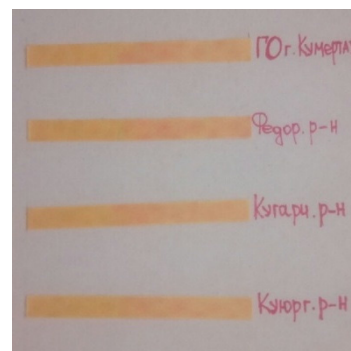 ГО г. Кумертау
Федор. р-н
Кугарч. р-н
Куюрг. р-н